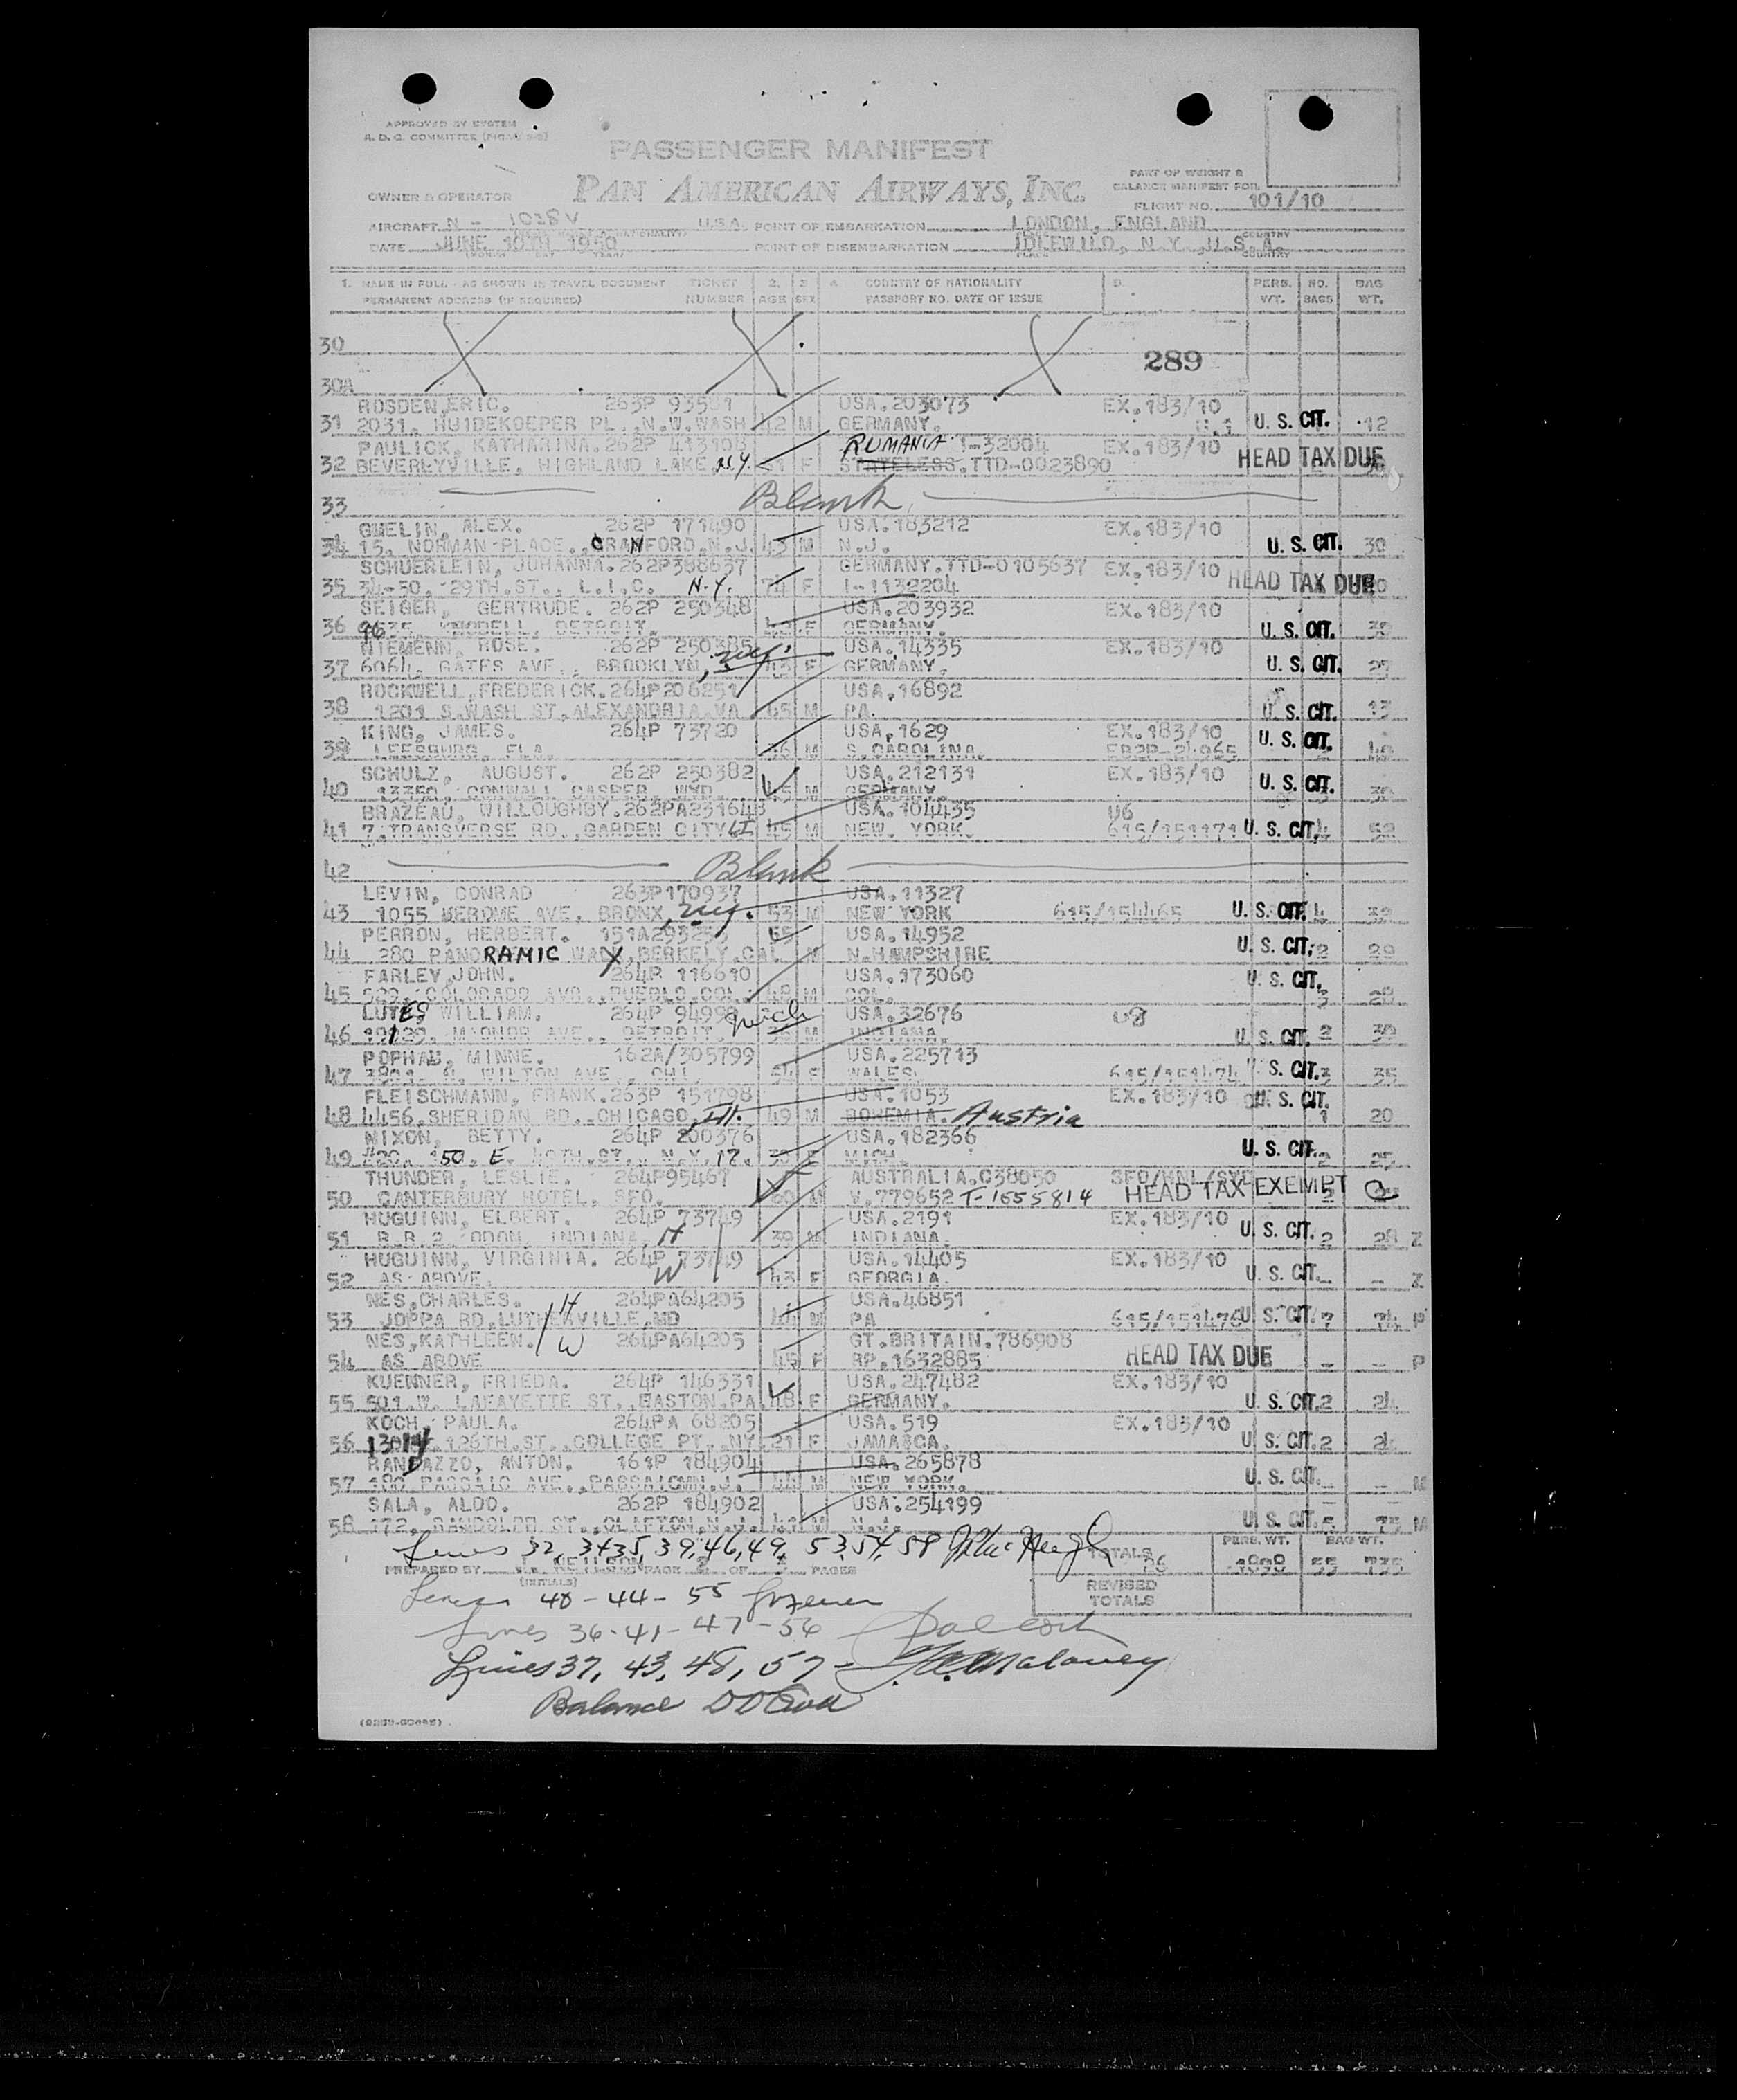 APPROVED BY SYSTEM
PASSENGER MANIFEST
PAN AMERICAN AIRWAYS, INC.
PART OF WEIGHT &
BALANCE MANIFEST FOR
OWNER & OPERATOR
FLIGHT NO. 101/10
AIRCRAFT N - 1028V U.S.A. POINT OF EMBARKATION LONDON, ENGLAND
DATE JUNE 10TH 1950 POINT OF DISEMBARKATION IDLEWILD, N.Y., U.S.A.
1. NAME IN FULL - AS SHOWN IN TRAVEL DOCUMENT TICKET 2. 3 4. COUNTRY OF NATIONALITY 5. PERS. NO. BAG
PERMANENT ADDRESS (IF REQUIRED) NUMBER AGE SEX PASSPORT NO. DATE OF ISSUE WT. BAGS WT.
30 X X X
289
30A
ROSDEN, ERIC. 263P USA.203073 EX.183/10
31 2031. HUIDEKOEPER PL., N.W.WASH 42 M GERMANY. U.S. CIT. 12
PAULICK, KATHARINA. 262P 413108 RUMANIA I-32004 EX.183/10
32 BEVERLYVILLE, HIGHLAND LAKE, N.Y. F STATELESS.TTD-0023890 HEAD TAX DUE
33 Blank
GMELIN, ALEX. 262P 171490 USA.183212 EX.183/10
34 15. NORMAN PLACE., CRANFORD.N.J. 43 M N.J. U.S. CIT. 30
SCHUERLEIN, JOHANNA. 262P388637 GERMANY.TTD-0105637 EX.183/10
35 34-50. 29TH.ST., L.I.C. N.Y. 74 F I-1132204 HEAD TAX DUE
SEIGER, GERTRUDE. 262P 250348 USA.203932 EX.183/10
36 9635 DETROIT. F GERMANY. U.S. CIT. 30
NIEMENN, ROSE. 262P 250385 USA.14335 EX.183/10
37 6064. GATES AVE., BROOKLYN, N.Y. 43 F GERMANY. U.S. CIT.
ROCKWELL, FREDERICK. 264P206251 USA.16892
38 1201 S.WASH ST, ALEXANDRIA.VA 45 M PA. U.S. CIT. 13
KING, JAMES. 264P 73720 USA.1629 EX.183/10
39 LEESBURG, FLA. M S.CAROLINA. U.S. CIT.
SCHULZ, AUGUST. 262P 250382 USA.212131 EX.183/10
40 CASPER, WYO. M GERMANY. U.S. CIT. 30
BRAZEAU, WILLOUGHBY. 262PA231648 USA.104435 U6
41 7.TRANSVERSE RD., GARDEN CITY LI 45 M NEW YORK. 615/151171 U.S. CIT. 4 52
42 Blank
LEVIN, CONRAD 263P170937 USA.11327
43 1055 JEROME AVE, BRONX, N.Y. 53 M NEW YORK 615/154465 U.S. CIT. 4
PERRON, HERBERT. 151A29325 55 USA.14952
44 280 PANORAMIC WAY, BERKELY.CAL M N.HAMPSHIRE U.S. CIT. 2 29
FARLEY, JOHN. 264P 116610 USA.173060
45 COLORADO AVE., PUEBLO.COL. 48 M COL. U.S. CIT. 3 28
LUTES, WILLIAM. 264P USA.32676 U8
46 AVE., DETROIT. Mich M INDIANA. U.S. CIT. 2 30
POPHAM, MINNE. 162A/305799 USA.225713
47 3801. N. WILTON AVE., CHI. 54 F WALES. 615/151474 U.S. CIT. 3 35
FLEISCHMANN, FRANK. 263P 151798 USA.1053 EX.183/10
48 4456.SHERIDAN RD., CHICAGO, Ill. 49 M BOHEMIA. Austria U.S. CIT. 1 20
NIXON, BETTY. 264P 200376 USA.182366
49 #20. 150. E. 49TH.ST., N.Y. 17. 30 F MICH. U.S. CIT. 2 25
THUNDER, LESLIE. 264P95467 AUSTRALIA.C38050 SFO/HNL/SYD
50 CANTERBURY HOTEL, SFO. 60 M V.779652 T-1655814 HEAD TAX EXEMPT C
HUGUINN, ELBERT. 264P 73749 USA.2191 EX.183/10
51 R.R.2. ODON, INDIANA. H 39 M INDIANA. U.S. CIT. 2 28 Z
HUGUINN, VIRGINIA. 264P 73749 USA.14405 EX.183/10
52 AS ABOVE. W 43 F GEORGIA. U.S. CIT. - - Z
NES, CHARLES. H 264PA64205 USA.46851
53 JOPPA RD, LUTHERVILLE, MD 44 M PA 615/151476 U.S. CIT. 7 74 P
NES, KATHLEEN. W 264PA64205 GT.BRITAIN.786908
54 AS ABOVE 45 F RP.1632885 HEAD TAX DUE - - P
KUENNER, FRIEDA. 264P 146331 USA.247482 EX.183/10
55 501.W. LAFAYETTE ST., EASTON.PA. 48 F GERMANY. U.S. CIT. 2 24
KOCH, PAULA. 264PA 68205 USA.519 EX.183/10
56 126TH.ST., COLLEGE PT., NY. 21 F JAMAICA. U.S. CIT. 2 24
RANDAZZO, ANTON. 161P 184904 USA.265878
57 180 PASSAIC AVE., PASSAIC N.J. 44 M NEW YORK. U.S. CIT. - - M
SALA, ALDO. 262P 184902 USA.254199
58 172. RANDOLPH ST., CLIFTON, N.J. M N.J. U.S. CIT. 5 75 M
Lines 32, 34 35, 39, 46, 49, 53, 54, 58
PREPARED BY (INITIALS) PAGE 2 OF 3 PAGES
TOTALS 26 PERS. WT. BAG WT. 55 735
REVISED
TOTALS
Lines 40 - 44 - 55
Lines 36 - 41 - 47 - 56
Lines 37, 43, 48, 57 - Malaney
Balance